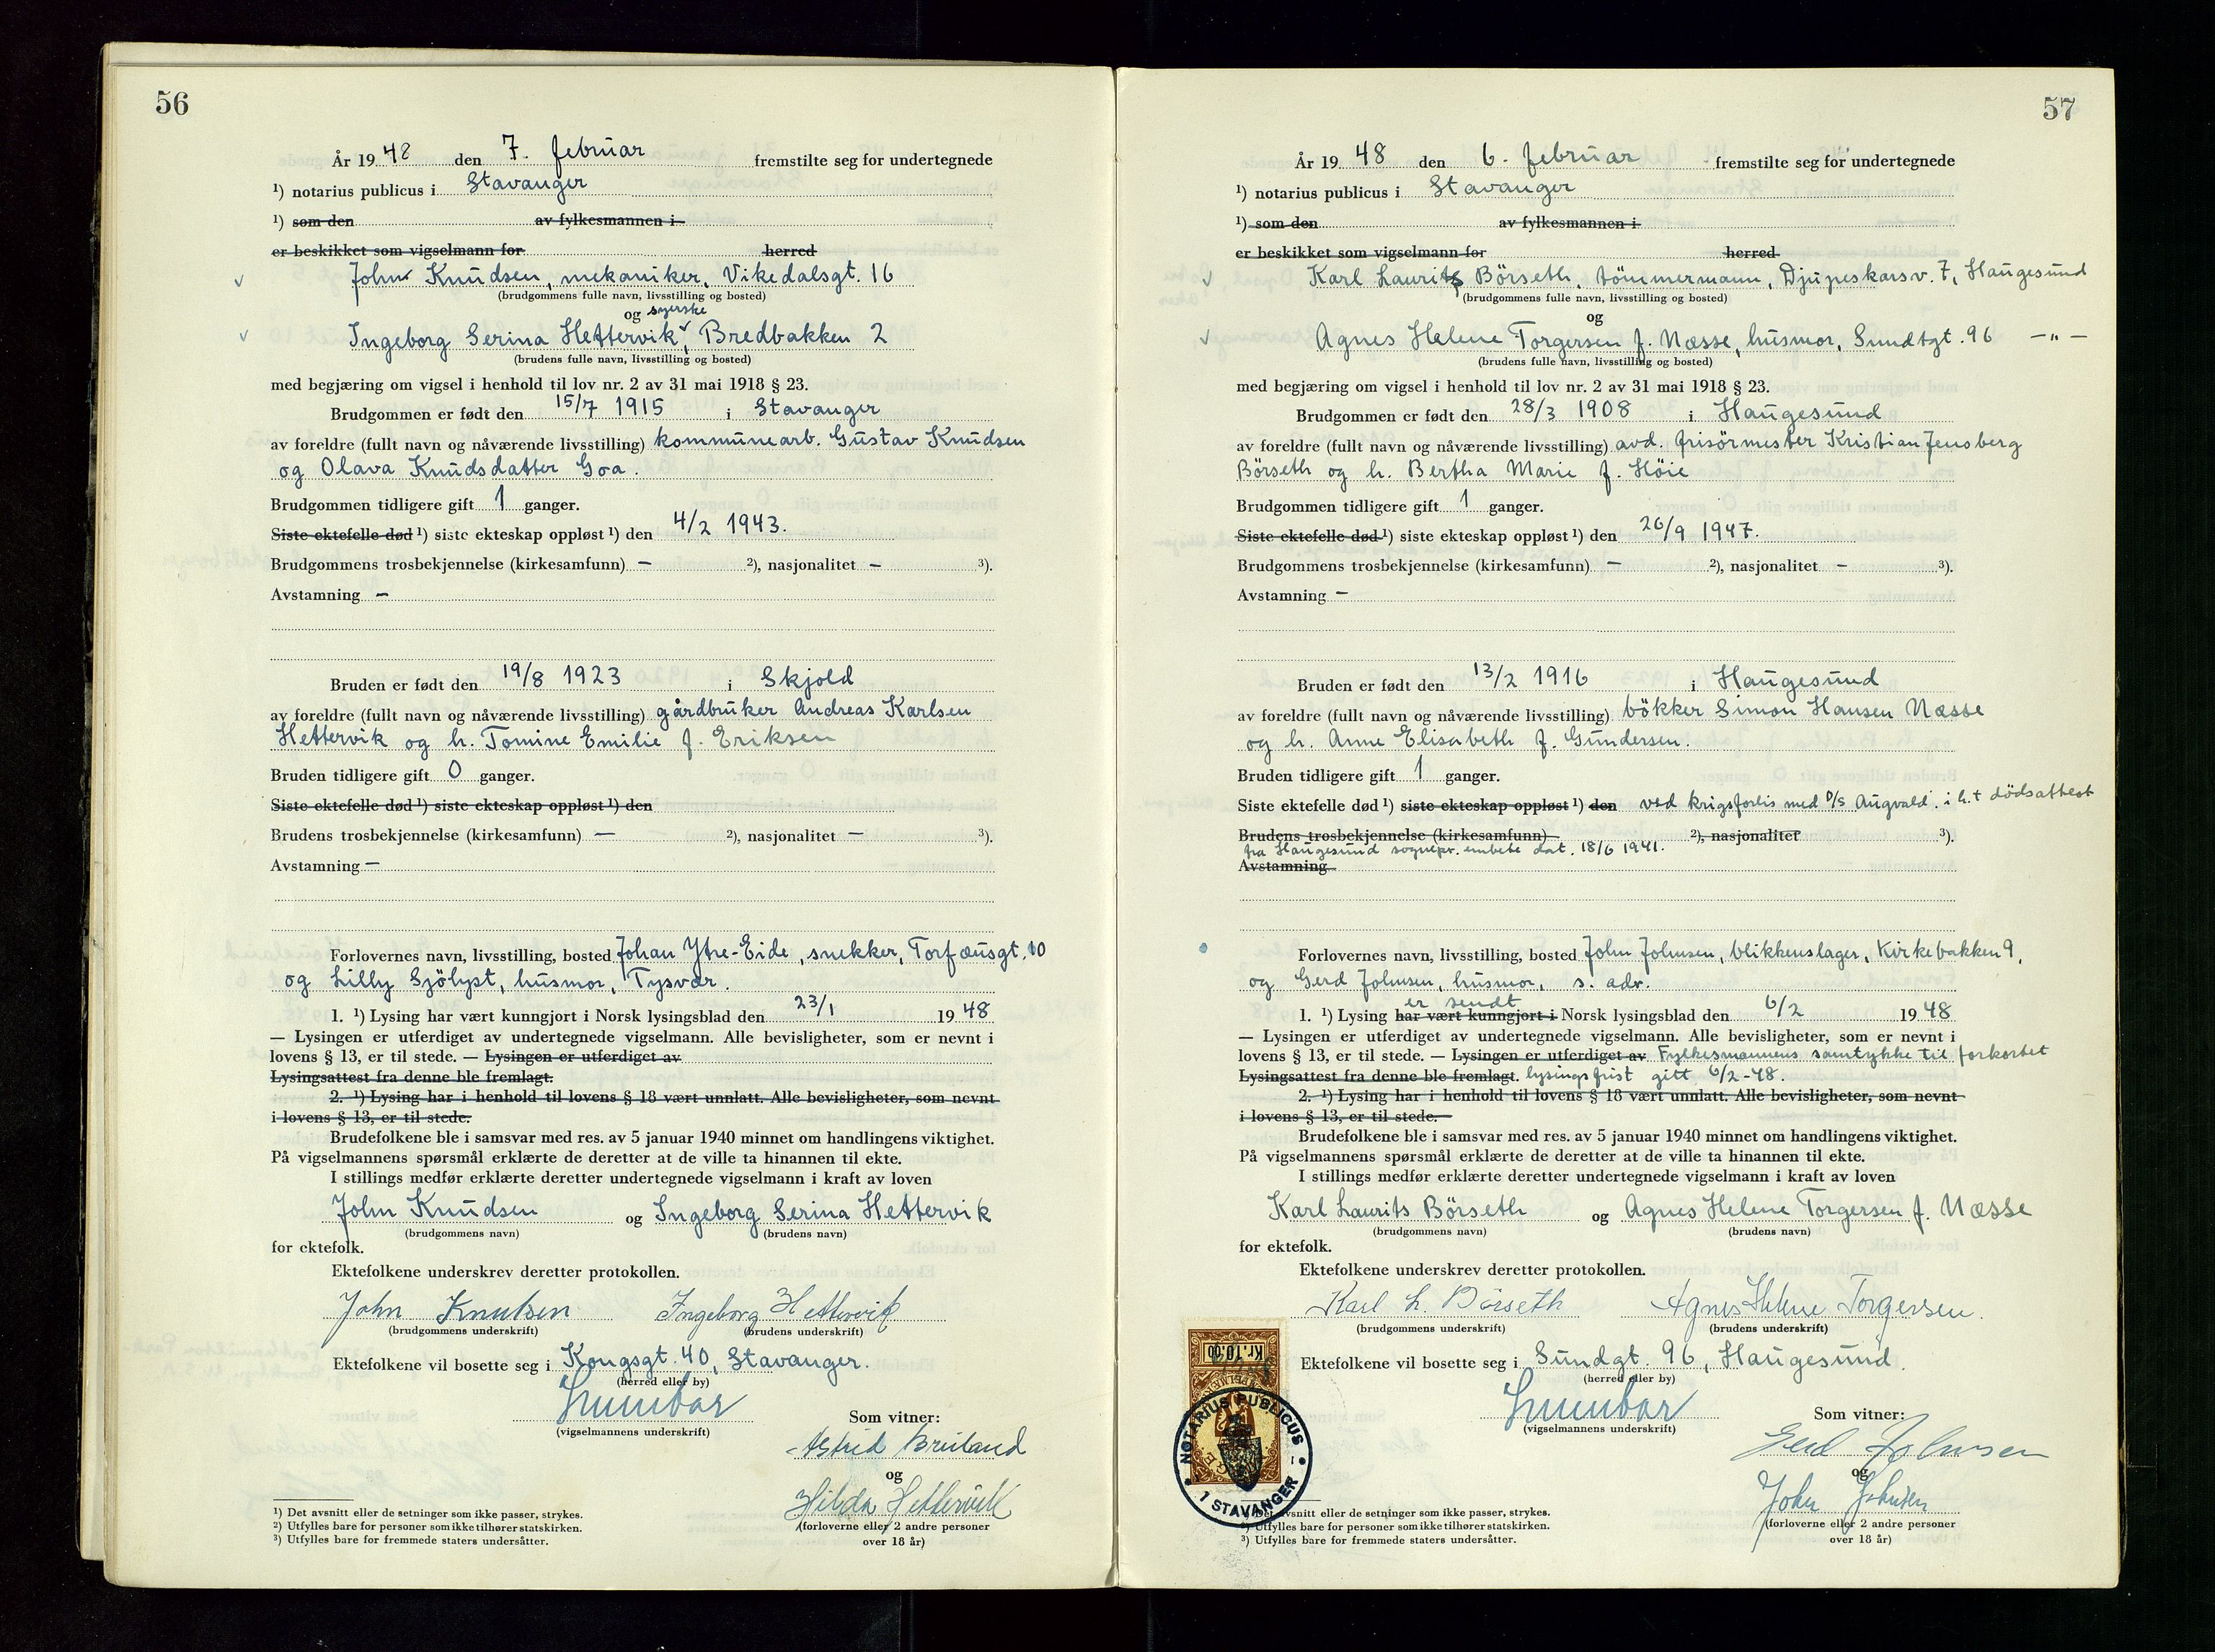 56
År 19 48 den 7. februar fremstilte seg for undertegnede
¹) notarius publicus i Stavanger
¹) som den av fylkesmannen i
er beskikket som vigselmann for herred
John Knudsen, mekaniker, Vikedalsgt. 16
(brudgommens fulle navn, livsstilling og bosted)
og syerske
Ingeborg Serina Hettervik, Bredbakken 2
(brudens fulle navn, livsstilling og bosted)
med begjæring om vigsel i henhold til lov nr. 2 av 31 mai 1918 § 23.
Brudgommen er født den 15/7 1915 i Stavanger
av foreldre (fullt navn og nåværende livsstilling) kommunearb. Gustav Knudsen
og Olava Knudsdatter Goa.
Brudgommen tidligere gift 1 ganger.
Siste ektefelle død ¹) siste ekteskap oppløst ¹) den 4/2 1943.
Brudgommens trosbekjennelse (kirkesamfunn) — ²), nasjonalitet — ³).
Avstamning —
Bruden er født den 19/8 1923 i Skjold
av foreldre (fullt navn og nåværende livsstilling) gårdbruker Andreas Karlsen
Hettervik og h. Tomine Emilie f. Eriksen
Bruden tidligere gift 0 ganger.
Siste ektefelle død ¹) siste ekteskap oppløst ¹) den
Brudens trosbekjennelse (kirkesamfunn) — ²), nasjonalitet — ³).
Avstamning —
Forlovernes navn, livsstilling, bosted Johan Ytre-Eide, snekker, Torfæusgt. 10
og Lilly Sjölyst, husmor, Tysvær.
1. ¹) Lysing har vært kunngjort i Norsk lysingsblad den 23/1 19 48
— Lysingen er utferdiget av undertegnede vigselmann. Alle bevisligheter, som er nevnt i
lovens § 13, er til stede. — Lysingen er utferdiget av
Lysingsattest fra denne ble fremlagt.
2. ¹) Lysing har i henhold til lovens § 18 vært unnlatt. Alle bevisligheter, som nevnt
i lovens § 13, er til stede.
Brudefolkene ble i samsvar med res. av 5 januar 1940 minnet om handlingens viktighet.
På vigselmannens spørsmål erklærte de deretter at de ville ta hinannen til ekte.
I stillings medfør erklærte deretter undertegnede vigselmann i kraft av loven
John Knudsen og Ingeborg Serina Hettervik
(brudgommens navn) (brudens navn)
for ektefolk.
Ektefolkene underskrev deretter protokollen.
John Knutsen Ingeborg Hettervik
(brudgommens underskrift) (brudens underskrift)
Ektefolkene vil bosette seg i Kongsgt. 40, Stavanger.
(herred eller by)
(vigselmannens underskrift)
Som vitner:
Astrid
og
Hilda Hettervik
(forloverne eller 2 andre personer
over 18 år)
¹) Det avsnitt eller de setninger som ikke passer, strykes.
²) Utfylles bare for personer som ikke tilhører statskirken.
³) Utfylles bare for fremmede staters undersåtter.
57
År 19 48 den 6. februar fremstilte seg for undertegnede
¹) notarius publicus i Stavanger
¹) som den av fylkesmannen i
er beskikket som vigselmann for herred
Karl Laurits Börseth, tömmermann, Djupeskarsv. 7, Haugesund
(brudgommens fulle navn, livsstilling og bosted)
og
Agnes Helene Torgersen f. Næsse, husmor, Sundtgt. 96 —"—
(brudens fulle navn, livsstilling og bosted)
med begjæring om vigsel i henhold til lov nr. 2 av 31 mai 1918 § 23.
Brudgommen er født den 28/3 1908 i Haugesund
av foreldre (fullt navn og nåværende livsstilling) avd. frisörmester Kristian Jensberg
Börseth og h. Bertha Marie f. Höie
Brudgommen tidligere gift 1 ganger.
Siste ektefelle død ¹) siste ekteskap oppløst ¹) den 26/9 1947.
Brudgommens trosbekjennelse (kirkesamfunn) — ²), nasjonalitet — ³).
Avstamning —
Bruden er født den 13/2 1916 i Haugesund
av foreldre (fullt navn og nåværende livsstilling) bökker Simon Hansen Næsse
og h. Anne Elisabeth f. Gundersen.
Bruden tidligere gift 1 ganger.
Siste ektefelle død ¹) siste ekteskap oppløst ¹) den ved krigsforlis med D/S Augvald. i h.t dödsattest
Brudens trosbekjennelse (kirkesamfunn) ²), nasjonalitet ³).
fra Haugesund sognepr. embete dat. 18/6 1941.
Avstamning
Forlovernes navn, livsstilling, bosted John Johnsen, blikkenslager, Kirkebakken 9,
og Gerd Johnsen, husmor, s. adr.
er sendt
1. ¹) Lysing har vært kunngjort i Norsk lysingsblad den 6/2 19 48
— Lysingen er utferdiget av undertegnede vigselmann. Alle bevisligheter, som er nevnt i
lovens § 13, er til stede. — Lysingen er utferdiget av Fylkesmannens samtykke til forkortet
Lysingsattest fra denne ble fremlagt. lysingsfrist gitt 6/2-48.
2. ¹) Lysing har i henhold til lovens § 18 vært unnlatt. Alle bevisligheter, som nevnt
i lovens § 13, er til stede.
Brudefolkene ble i samsvar med res. av 5 januar 1940 minnet om handlingens viktighet.
På vigselmannens spørsmål erklærte de deretter at de ville ta hinannen til ekte.
I stillings medfør erklærte deretter undertegnede vigselmann i kraft av loven
Karl Laurits Börseth og Agnes Helene Torgersen f. Næsse
(brudgommens navn) (brudens navn)
for ektefolk.
Ektefolkene underskrev deretter protokollen.
Karl L. Börseth Agnes Helene Torgersen.
(brudgommens underskrift) (brudens underskrift)
Ektefolkene vil bosette seg i Sundgt. 96, Haugesund.
(herred eller by)
(vigselmannens underskrift)
Som vitner:
Gerd Johnsen
og
John Johnsen
(forloverne eller 2 andre personer
over 18 år)
Kr. 10.00
NOTARIUS PUBLICUS I STAVANGER
¹) Det avsnitt eller de setninger som ikke passer, strykes.
²) Utfylles bare for personer som ikke tilhører statskirken.
³) Utfylles bare for fremmede staters undersåtter.